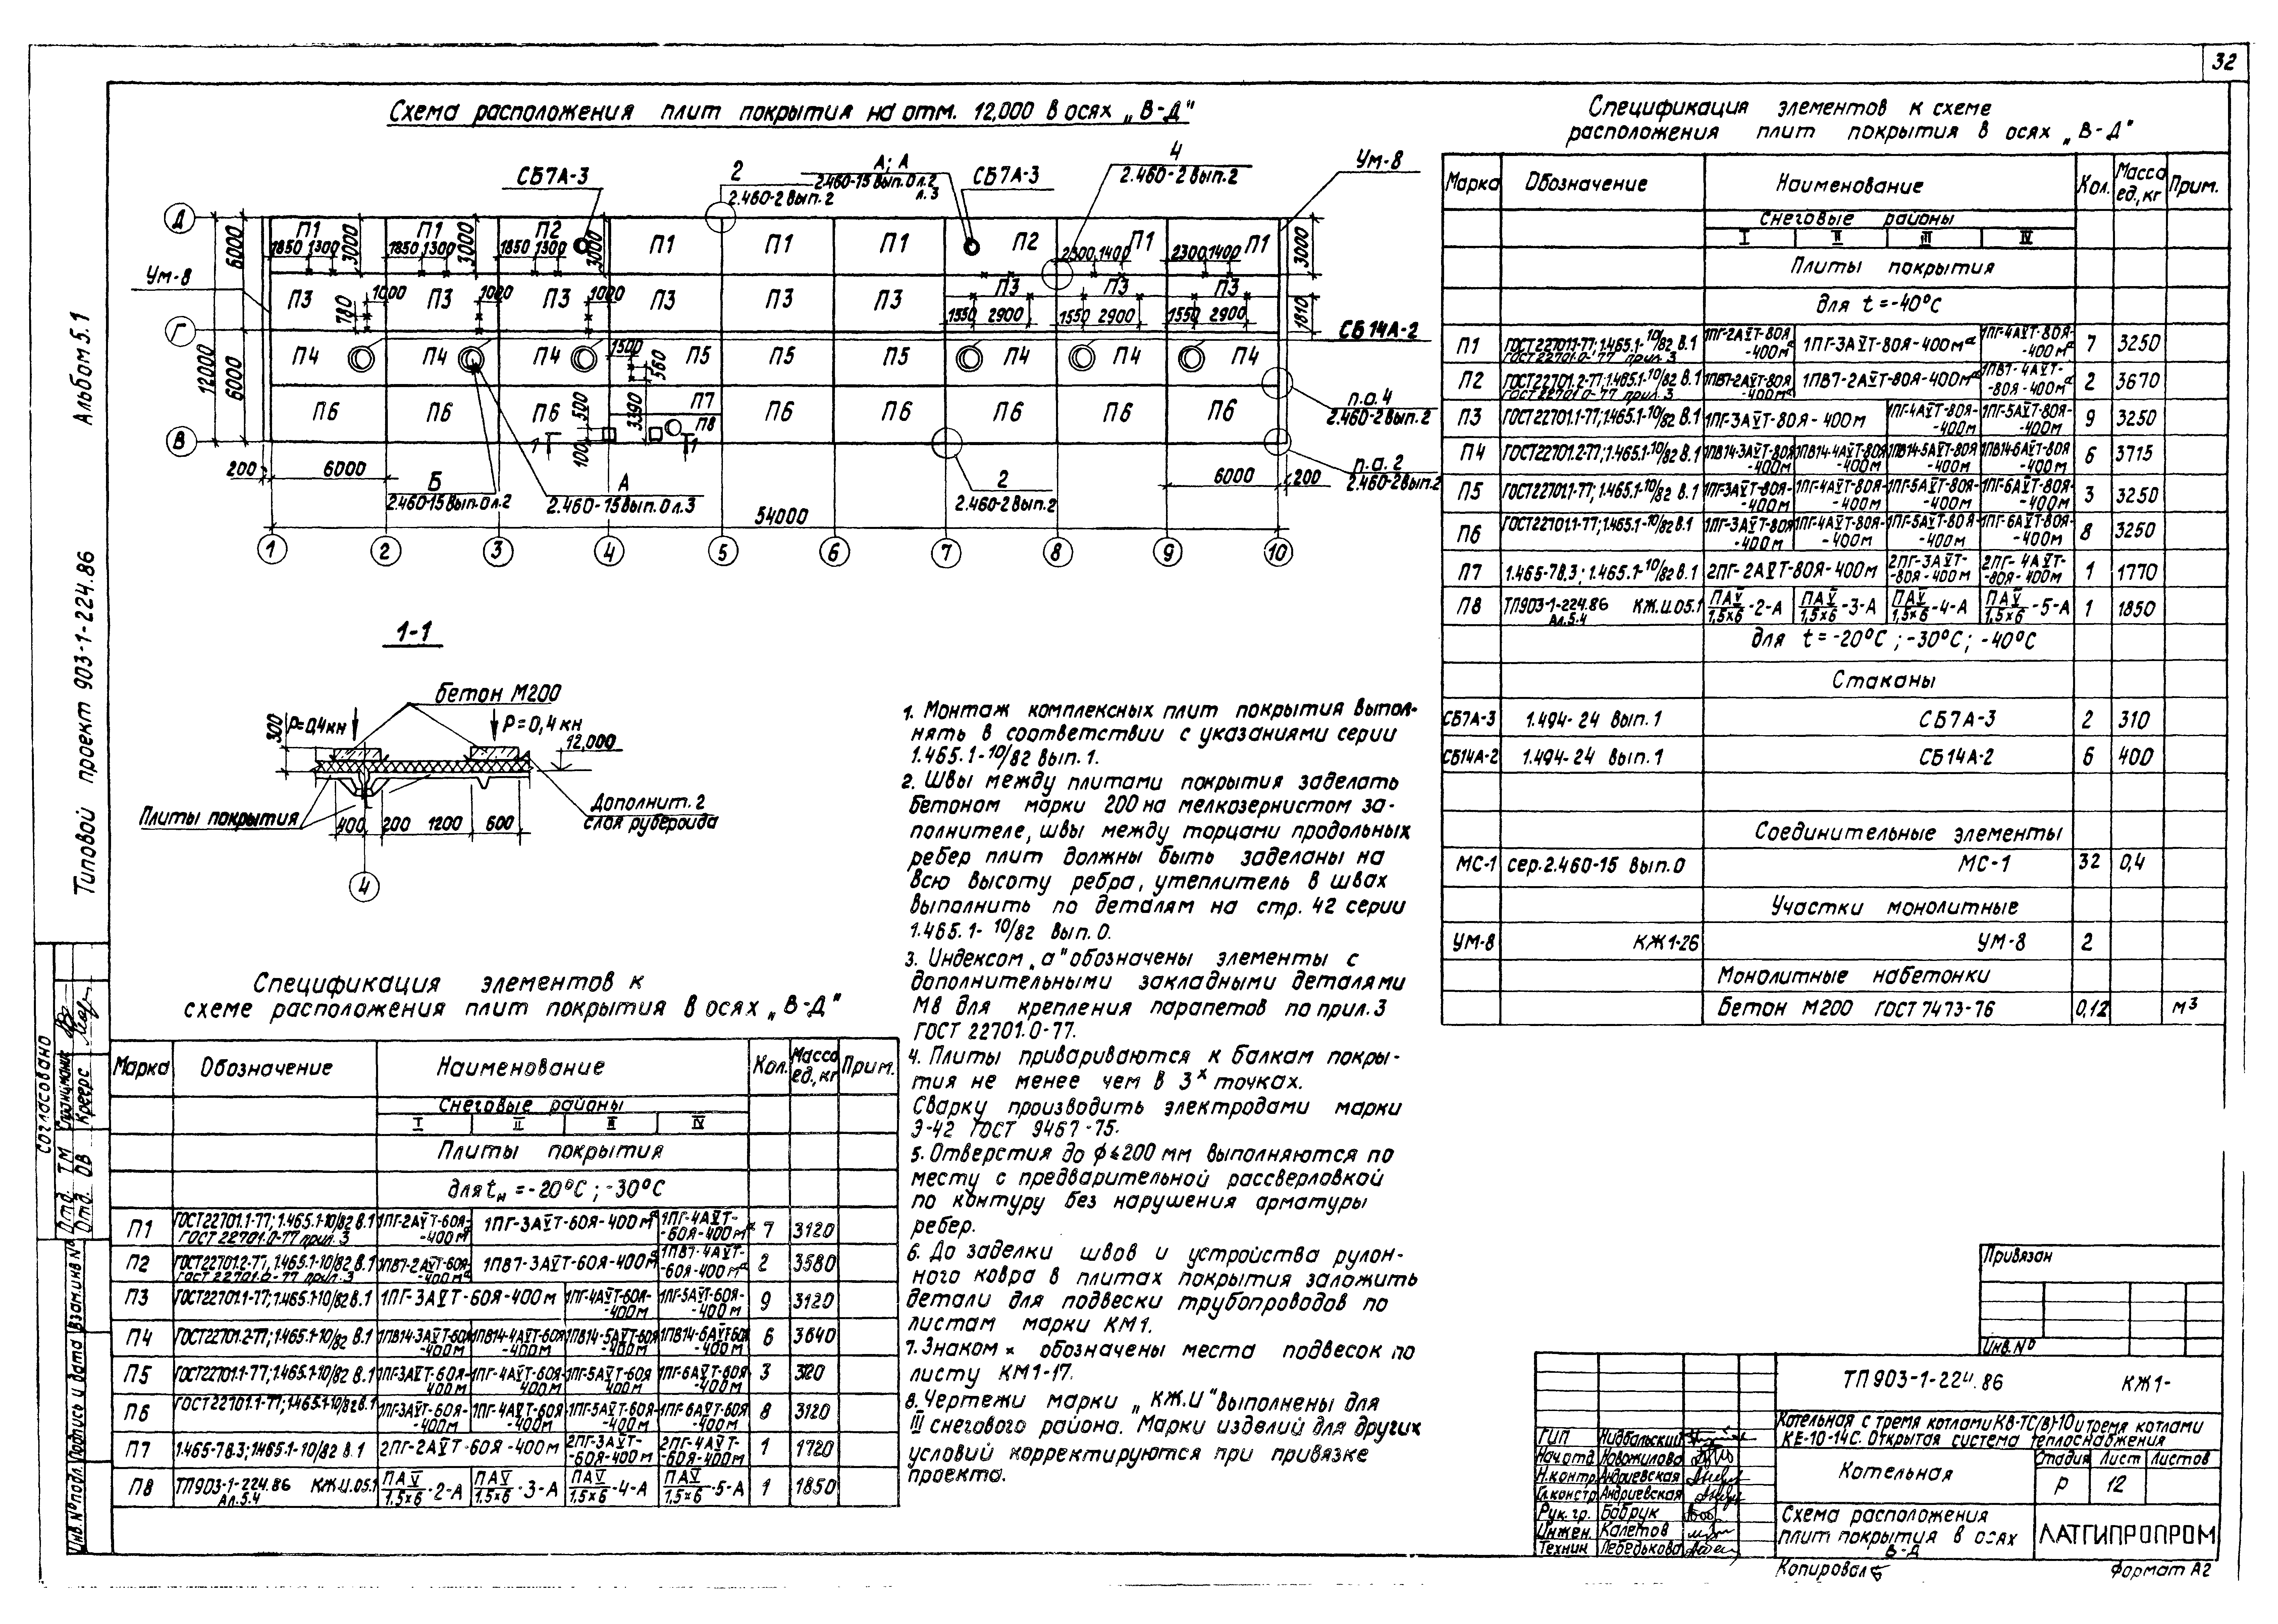 32
Схема расположения плит покрытия на отм. 12,000 в осях „В-Д"
СБ7А-3
2
2.460-2 вып.2
А; А
2.460-15 вып.0 л.2
л.3
СБ7А-3
4
2.460-2 вып.2
УМ-8
Д
Г
В
6000
6000
12000
П1 П1 П2 П1 П1 П1 П2 П1 П1
1850 1300 3000 1850 1300 3000 1850 1300 3000 2300 1400 2300 1400 3000
УМ-8
П3 П3 П3 П3 П3 П3 П3 П3 П3
780 1000 1020 1020 1550 2900 1550 2900 1550 2900 1810
СБ14А-2
П4 П4 П4 П5 П5 П5 П4 П4 П4
1500 560
П6 П6 П6 П7 П6 П6 П6 П6 П6
П8
500 3390 100
1 1
п.а. 4
2.460-2 вып.2
п.а. 2
2.460-2 вып.2
200 6000 6000 200
Б
2.460-15 вып.0 л.2
А
2.460-15 вып.0 л.3
2
2.460-2 вып.2
54000
1 2 3 4 5 6 7 8 9 10
1-1
бетон М200
P=0,4кн
P=0,4кн
300
12,000
Плиты покрытия
Дополнит. 2
слоя рубероида
400 200 1200 600
4
Спецификация элементов к
схеме расположения плит покрытия в осях „В-Д"
Марка Обозначение Наименование Кол. Масса ед., кг Прим.
Снеговые районы
I II III IV
Плиты покрытия
для tн = -20°С; -30°С
П1 ГОСТ22701.1-77; 1.465.1-10/82 в.1 ГОСТ 22701.0-77 прил. 3 1ПГ-2АVТ-60Я-400ма 1ПГ-3АVТ-60Я-400ма 1ПГ-4АVТ-60Я-400ма 7 3120
П2 ГОСТ22701.2-77; 1.465.1-10/82 в.1 ГОСТ 22701.0-77 прил. 3 1ПВ7-2АVТ-60Я-400ма 1ПВ7-3АVТ-60Я-400ма 1ПВ7-4АVТ-60Я-400ма 2 3580
П3 ГОСТ22701.1-77; 1.465.1-10/82 в.1 1ПГ-3АVТ-60Я-400м 1ПГ-4АVТ-60Я-400м 1ПГ-5АVТ-60Я-400м 9 3120
П4 ГОСТ22701.2-77; 1.465.1-10/82 в.1 1ПВ14-3АVТ-60Я-400м 1ПВ14-4АVТ-60Я-400м 1ПВ14-5АVТ-60Я-400м 1ПВ14-6АVТ-60Я-400м 6 3640
П5 ГОСТ22701.1-77; 1.465.1-10/82 в.1 1ПГ-3АVТ-60Я-400м 1ПГ-4АVТ-60Я-400м 1ПГ-5АVТ-60Я-400м 1ПГ-6АVТ-60Я-400м 3 3120
П6 ГОСТ22701.1-77; 1.465.1-10/82 в.1 1ПГ-3АVТ-60Я-400м 1ПГ-4АVТ-60Я-400м 1ПГ-5АVТ-60Я-400м 1ПГ-6АVТ-60Я-400м 8 3120
П7 1.465-78.3; 1.465.1-10/82 в.1 2ПГ-2АVТ-60Я-400м 2ПГ-3АVТ-60Я-400м 2ПГ-4АVТ-60Я-400м 1 1720
П8 ТП903-1-224.86 КЖ.И.05.1 Ал.5.4 ПАV/1,5х6-2-А ПАV/1,5х6-3-А ПАV/1,5х6-4-А ПАV/1,5х6-5-А 1 1850
1. Монтаж комплексных плит покрытия выпол-
нять в соответствии с указаниями серии
1.465.1-10/82 вып. 1.
2. Швы между плитами покрытия заделать
бетоном марки 200 на мелкозернистом за-
полнителе, швы между торцами продольных
ребер плит должны быть заделаны на
всю высоту ребра, утеплитель в швах
выполнить по деталям на стр. 42 серии
1.465.1-10/82 вып. 0.
3. Индексом „а" обозначены элементы с
дополнительными закладными деталями
М8 для крепления парапетов по прил.3
ГОСТ 22701.0-77.
4. Плиты привариваются к балкам покры-
тия не менее чем в 3х точках.
Сварку производить электродами марки
Э-42 ГОСТ 9467-75.
5. Отверстия до ф≤200 мм выполняются по
месту с предварительной рассверловкой
по контуру без нарушения арматуры
ребер.
6. До заделки швов и устройства рулон-
ного ковра в плитах покрытия заложить
детали для подвески трубопроводов по
листам марки КМ1.
7. Знаком × обозначены места подвесок по
листу КМ1-17.
8. Чертежи марки „КЖ.И" выполнены для
III снегового района. Марки изделий для других
условий корректируются при привязке
проекта.
Спецификация элементов к схеме
расположения плит покрытия в осях „В-Д"
Марка Обозначение Наименование Кол. Масса ед., кг Прим.
Снеговые районы
I II III IV
Плиты покрытия
для t = -40°С
П1 ГОСТ22701.1-77; 1.465.1-10/82 в.1 ГОСТ 22701.0-77 прил. 3 1ПГ-2АVТ-80Я-400ма 1ПГ-3АVТ-80Я-400ма 1ПГ-4АVТ-80Я-400ма 7 3250
П2 ГОСТ22701.2-77; 1.465.1-10/82 в.1 ГОСТ 22701.0-77 прил. 3 1ПВ7-2АVТ-80Я-400ма 1ПВ7-2АVТ-80Я-400ма 1ПВ7-4АVТ-80Я-400ма 2 3670
П3 ГОСТ22701.1-77; 1.465.1-10/82 в.1 1ПГ-3АVТ-80Я-400м 1ПГ-4АVТ-80Я-400м 1ПГ-5АVТ-80Я-400м 9 3250
П4 ГОСТ22701.2-77; 1.465.1-10/82 в.1 1ПВ14-3АVТ-80Я-400м 1ПВ14-4АVТ-80Я-400м 1ПВ14-5АVТ-80Я-400м 1ПВ14-6АVТ-80Я-400м 6 3715
П5 ГОСТ22701.1-77; 1.465.1-10/82 в.1 1ПГ-3АVТ-80Я-400м 1ПГ-4АVТ-80Я-400м 1ПГ-5АVТ-80Я-400м 1ПГ-6АVТ-80Я-400м 3 3250
П6 ГОСТ22701.1-77; 1.465.1-10/82 в.1 1ПГ-3АVТ-80Я-400м 1ПГ-4АVТ-80Я-400м 1ПГ-5АVТ-80Я-400м 1ПГ-6АVТ-80Я-400м 8 3250
П7 1.465-78.3; 1.465.1-10/82 в.1 2ПГ-2АVТ-80Я-400м 2ПГ-3АVТ-80Я-400м 2ПГ-4АVТ-80Я-400м 1 1770
П8 ТП903-1-224.86 КЖ.И.05.1 Ал.5.4 ПАV/1,5х6-2-А ПАV/1,5х6-3-А ПАV/1,5х6-4-А ПАV/1,5х6-5-А 1 1850
для t = -20°С; -30°С; -40°С
Стаканы
СБ7А-3 1.494-24 вып.1 СБ7А-3 2 310
СБ14А-2 1.494-24 вып.1 СБ14А-2 6 400
Соединительные элементы
МС-1 сер.2.460-15 вып.0 МС-1 32 0,4
Участки монолитные
УМ-8 КЖ1-26 УМ-8 2
Монолитные набетонки
Бетон М200 ГОСТ 7473-76 0,12 м3
Привязан
Инв.№
ТП 903-1-224.86 КЖ1-
Котельная с тремя котлами КВ-ТС(В)-10 и тремя котлами
КЕ-10-14С. Открытая система теплоснабжения
ГИП Нидбальский
Нач.отд. Новожилова
Н.контр. Андриевская
Гл.констр. Андриевская
Рук.гр. Бабрук
Инжен. Калетов
Техник Лебедькова
Котельная
Стадия Лист Листов
Р 12
Схема расположения
плит покрытия в осях
В-Д
ЛАТГИПРОПРОМ
Копировал
Формат А2
Альбом 5.1
Типовой проект 903-1-224.86
Согласовано
Отд. ТМ
Отд. ОВ Креерс
Инв.№ подл. Подпись и дата Взам.инв.№